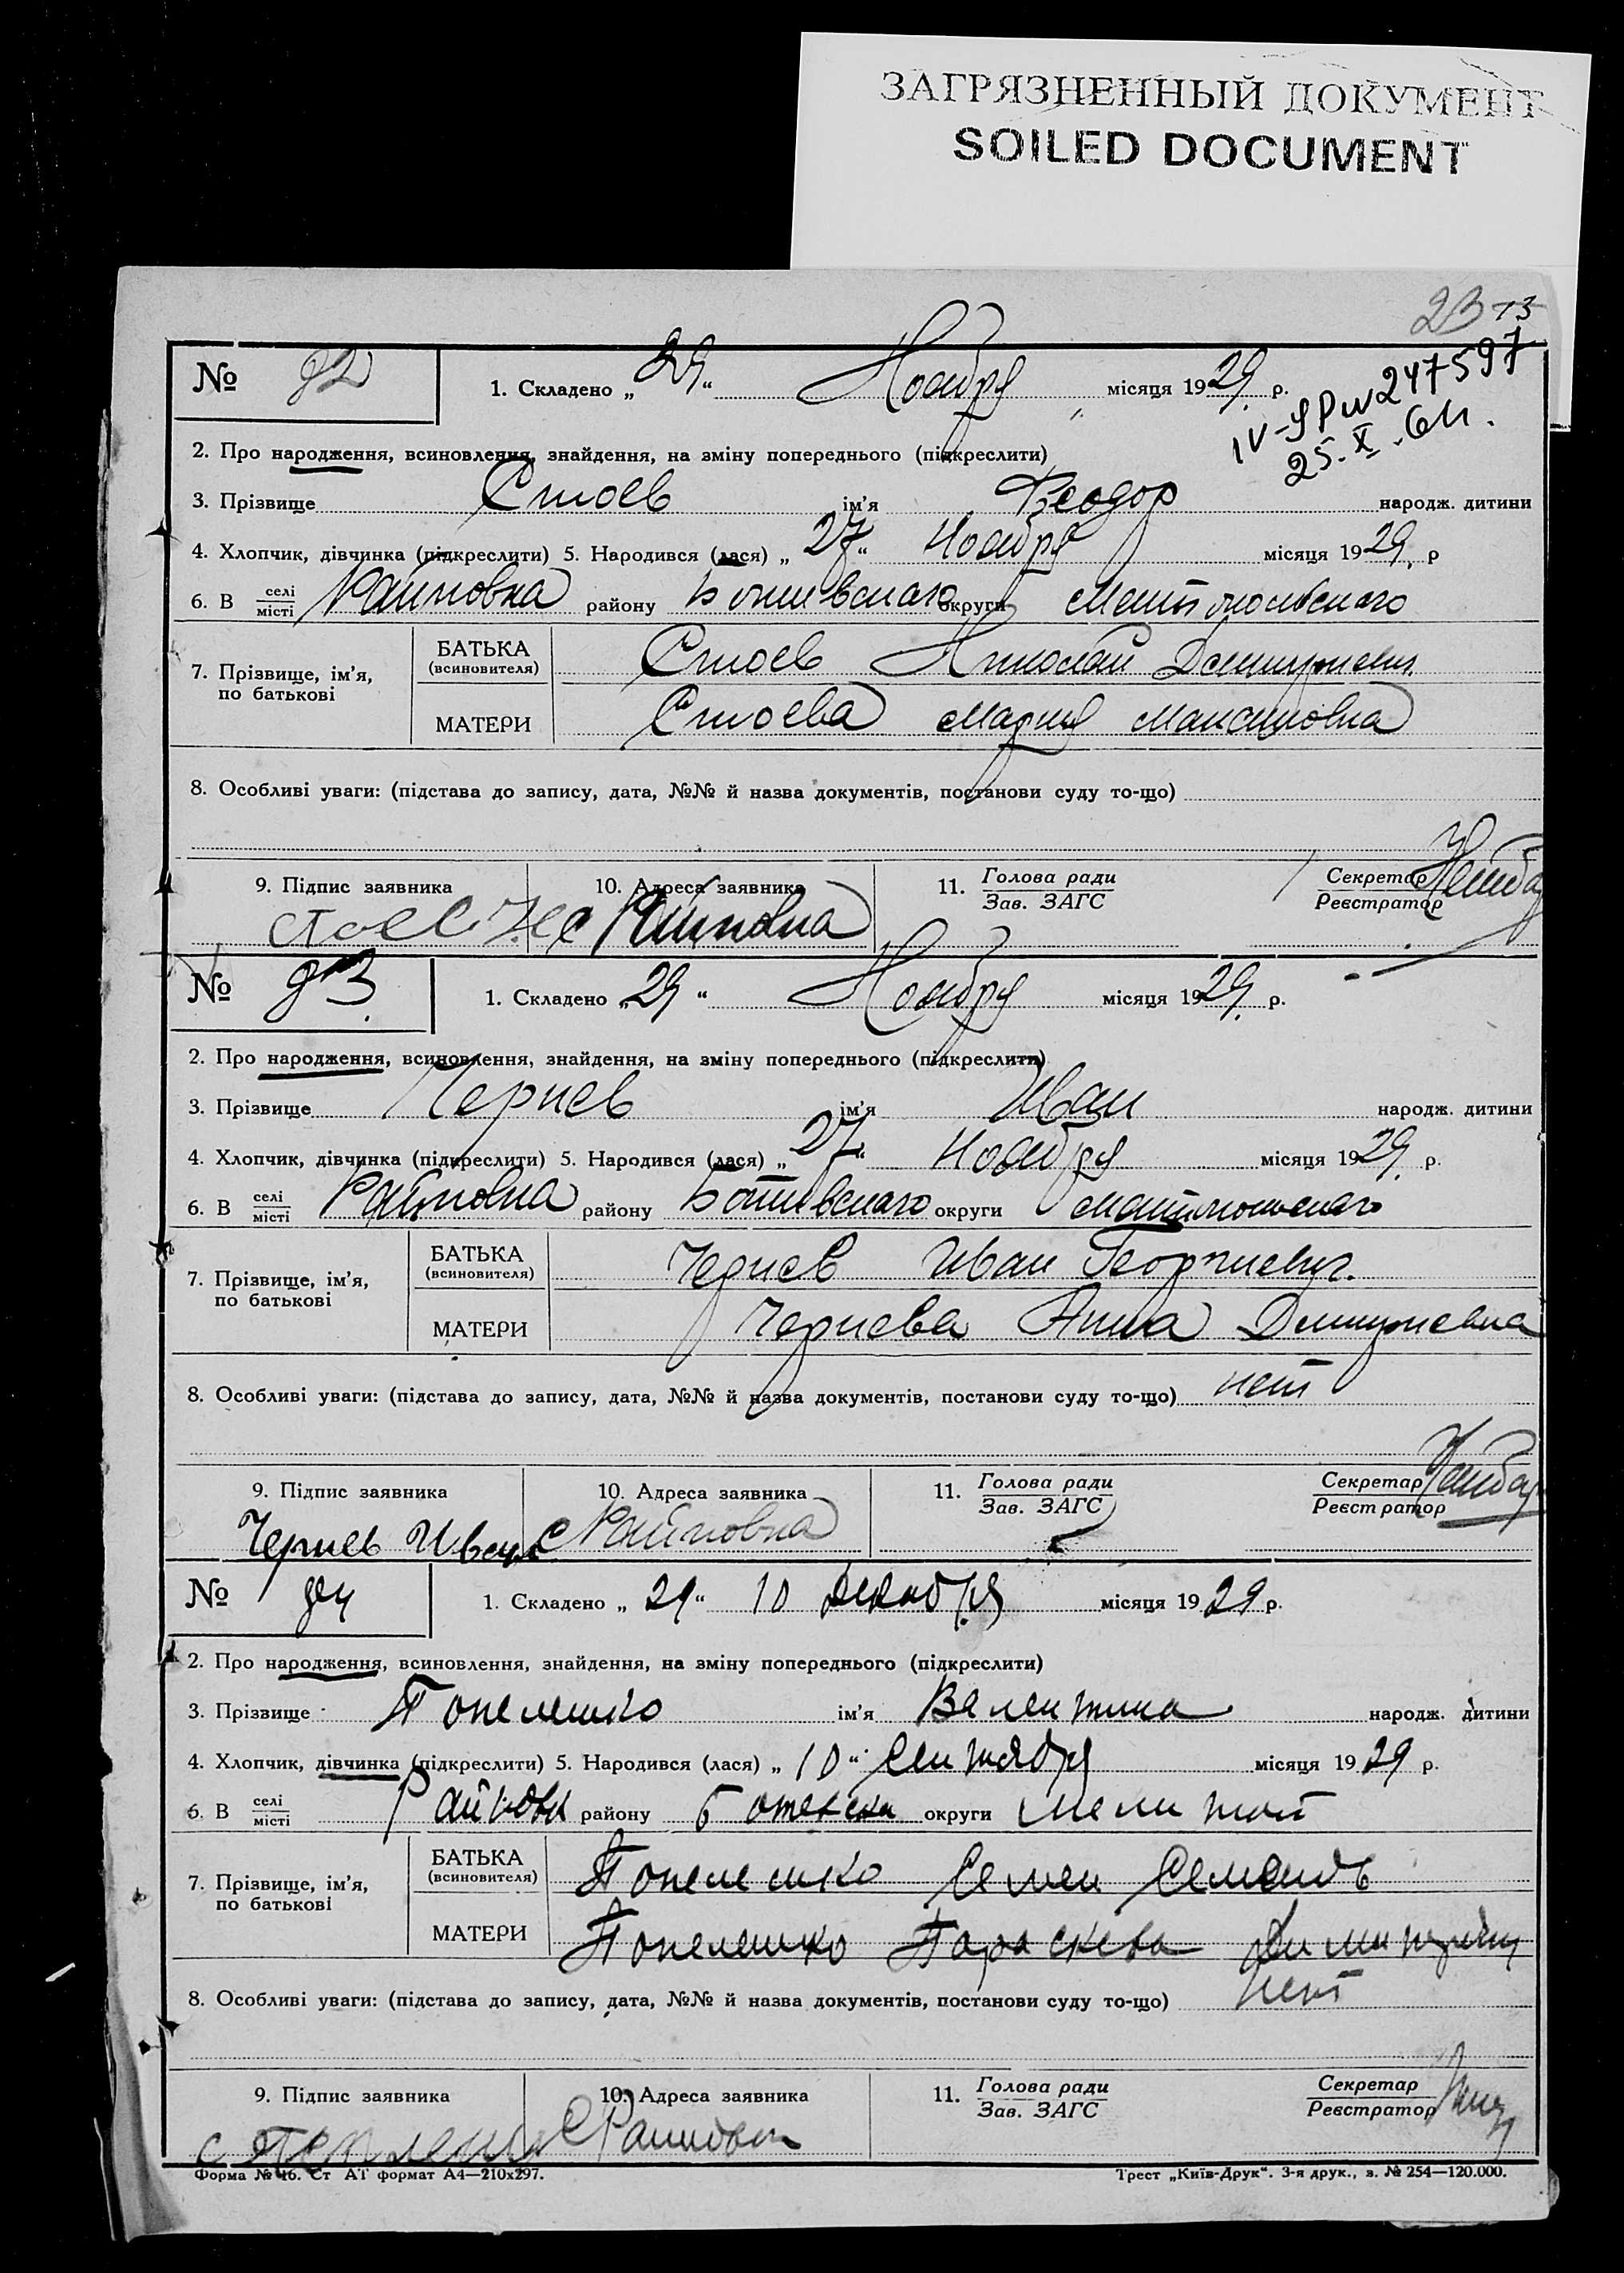 ЗАГРЯЗНЕННЫЙ ДОКУМЕНТ
SOILED DOCUMENT
23 13
№ 82 1. Складено „29“ Ноября місяця 1929 р.
IV-ЯРИ 247597
25.X.64.
2. Про народження, всиновлення, знайдення, на зміну попереднього (підкреслити)
3. Прізвище Стоев ім’я Феодор народж. дитини
4. Хлопчик, дівчинка (підкреслити) 5. Народився (лася) „27“ Ноября місяця 1929 р
6. В селі місті Райновка району Ботиевского округи Мелитопольского
7. Прізвище, ім’я, по батькові
БАТЬКА (всиновителя) Стоев Николай Дмитриевич
МАТЕРИ Стоева Мария Максимовна
8. Особливі уваги: (підстава до запису, дата, №№ й назва документів, постанови суду то-що)
9. Підпис заявника 10. Адреса заявника 11. Голова ради Зав. ЗАГС Секретар Реєстратор
Стоев с Райновка
№ 83. 1. Складено „29“ Ноября місяця 1929 р.
2. Про народження, всиновлення, знайдення, на зміну попереднього (підкреслити)
3. Прізвище Чернев ім’я Иван народж. дитини
4. Хлопчик, дівчинка (підкреслити) 5. Народився (лася) „27“ Ноября місяця 1929 р.
6. В селі місті Райновка району Ботиевского округи Мелитопольского
7. Прізвище, ім’я, по батькові
БАТЬКА (всиновителя) Чернев Иван Георгиевич.
МАТЕРИ Чернева Анна Дмитриевна
8. Особливі уваги: (підстава до запису, дата, №№ й назва документів, постанови суду то-що) нет
9. Підпис заявника 10. Адреса заявника 11. Голова ради Зав. ЗАГС Секретар Реєстратор
Чернев Иван с Райновка
№ 84 1. Складено „29“ 10 декабря місяця 1929 р.
2. Про народження, всиновлення, знайдення, на зміну попереднього (підкреслити)
3. Прізвище Попелешко ім’я Валентина народж. дитини
4. Хлопчик, дівчинка (підкреслити) 5. Народився (лася) „10“ Сентября місяця 1929 р.
6. В селі місті Райновк району Ботевска округи Мелитоп
7. Прізвище, ім’я, по батькові
БАТЬКА (всиновителя) Попелешко Семен
МАТЕРИ Попелешко Параскева
8. Особливі уваги: (підстава до запису, дата, №№ й назва документів, постанови суду то-що) нет
9. Підпис заявника 10. Адреса заявника 11. Голова ради Зав. ЗАГС Секретар Реєстратор
с Райновк
Форма № 46. Ст АТ формат А4—210х297. Трест „Київ-Друк“. 3-я друк., з. № 254—120.000.